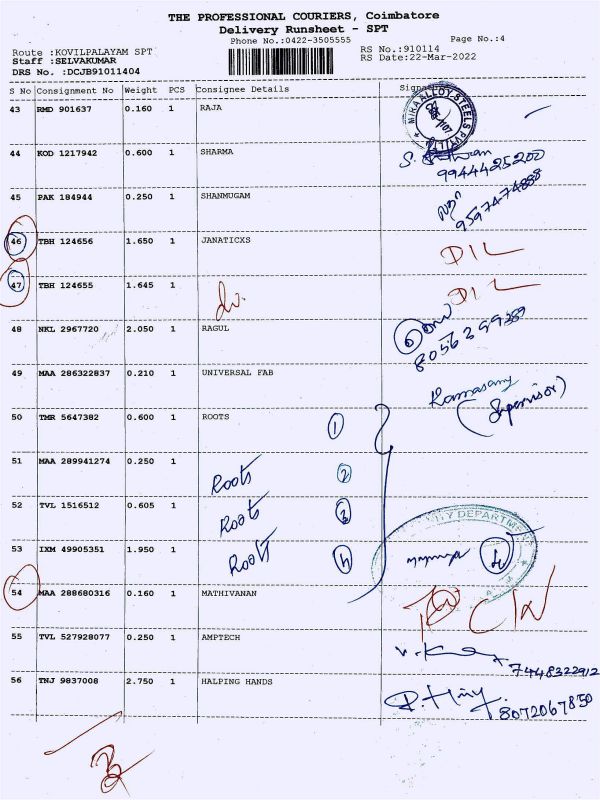 THE PROFESSIONAL COURIERS, Coimbatore
Delivery Runsheet - SPT
Phone No.:0422-3505555 Page No.:4
Route :KOVILPALAYAM SPT RS No.:910114
Staff :SELVAKUMAR RS Date:22-Mar-2022
DRS No. :DCJB91011404
S No Consignment No Weight PCS Consignee Details Signature
43 RMD 901637 0.160 1 RAJA
MIRAALLOY STEELS
44 KOD 1217942 0.600 1 SHARMA
9944425200
45 PAK 184944 0.250 1 SHANMUGAM
9597474888
46 TBH 124656 1.650 1 JANATICXS DIL
47 TBH 124655 1.645 1 do. DIL
48 NKL 2967720 2.050 1 RAGUL
8056399389
49 MAA 286322837 0.210 1 UNIVERSAL FAB Ramasamy
(Supervisor)
50 TMR 5647382 0.600 1 ROOTS 1
51 MAA 289941274 0.250 1 Roots 2
52 TVL 1516512 0.605 1 Roots 3
ITY DEPARTMENT
53 IXM 49905351 1.950 1 Roots 4
54 MAA 288680316 0.160 1 MATHIVANAN
55 TVL 527928077 0.250 1 AMPTECH
7448322912
56 TNJ 9837008 2.750 1 HALPING HANDS
8072067850